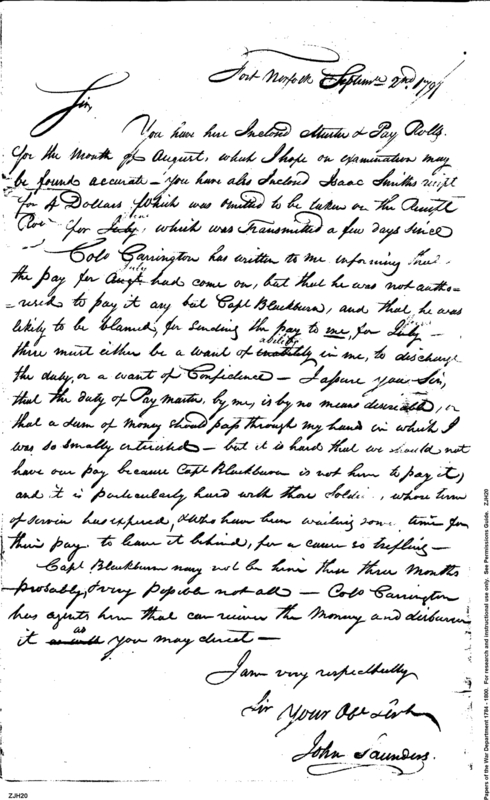 Fort Norfolk September 2nd. 1797
Sir,
You have here Inclosed Muster & Pay Rolls
for the Month of August, which I hope on examination may
be found accurate — you have also Inclosed Isaac Smiths receipt
for 4 Dollars which was omitted to be taken on the Receipt
Roll for July, which was transmitted a few days since
Colo Carrington has written to me informing that
the pay for July had come on, but that he was not autho-
-rised to pay it any but Capt Blackburn, and that he was
likely to be blamed for sending the pay to me, for
there must either be a want of ability in me, to discharge
the duty, or a want of Confidence — I assure you Sir,
that the duty of Pay master, by me, is by no means desireable, or
that a sum of money should pass through my hand in which I
was so smally interested — but it is hard that we should not
have our pay because Capt Blackburn is not here to pay it,
and it is particularly hard with those Soldiers, whose term
of service has expired, & who have been waiting some time for
their pay to leave it behind, for a cause so trifling —
Capt Blackburn may not be here these three months
probably & very possible not all — Colo Carrington
has agents here that can receive the Money and disburse
it as you may direct —
I am very respectfully
Sir Your Obt Servt
John Saunders.
ZJH20
Papers of the War Department 1784 - 1800. For research and instructional use only. See Permissions Guide. ZJH20